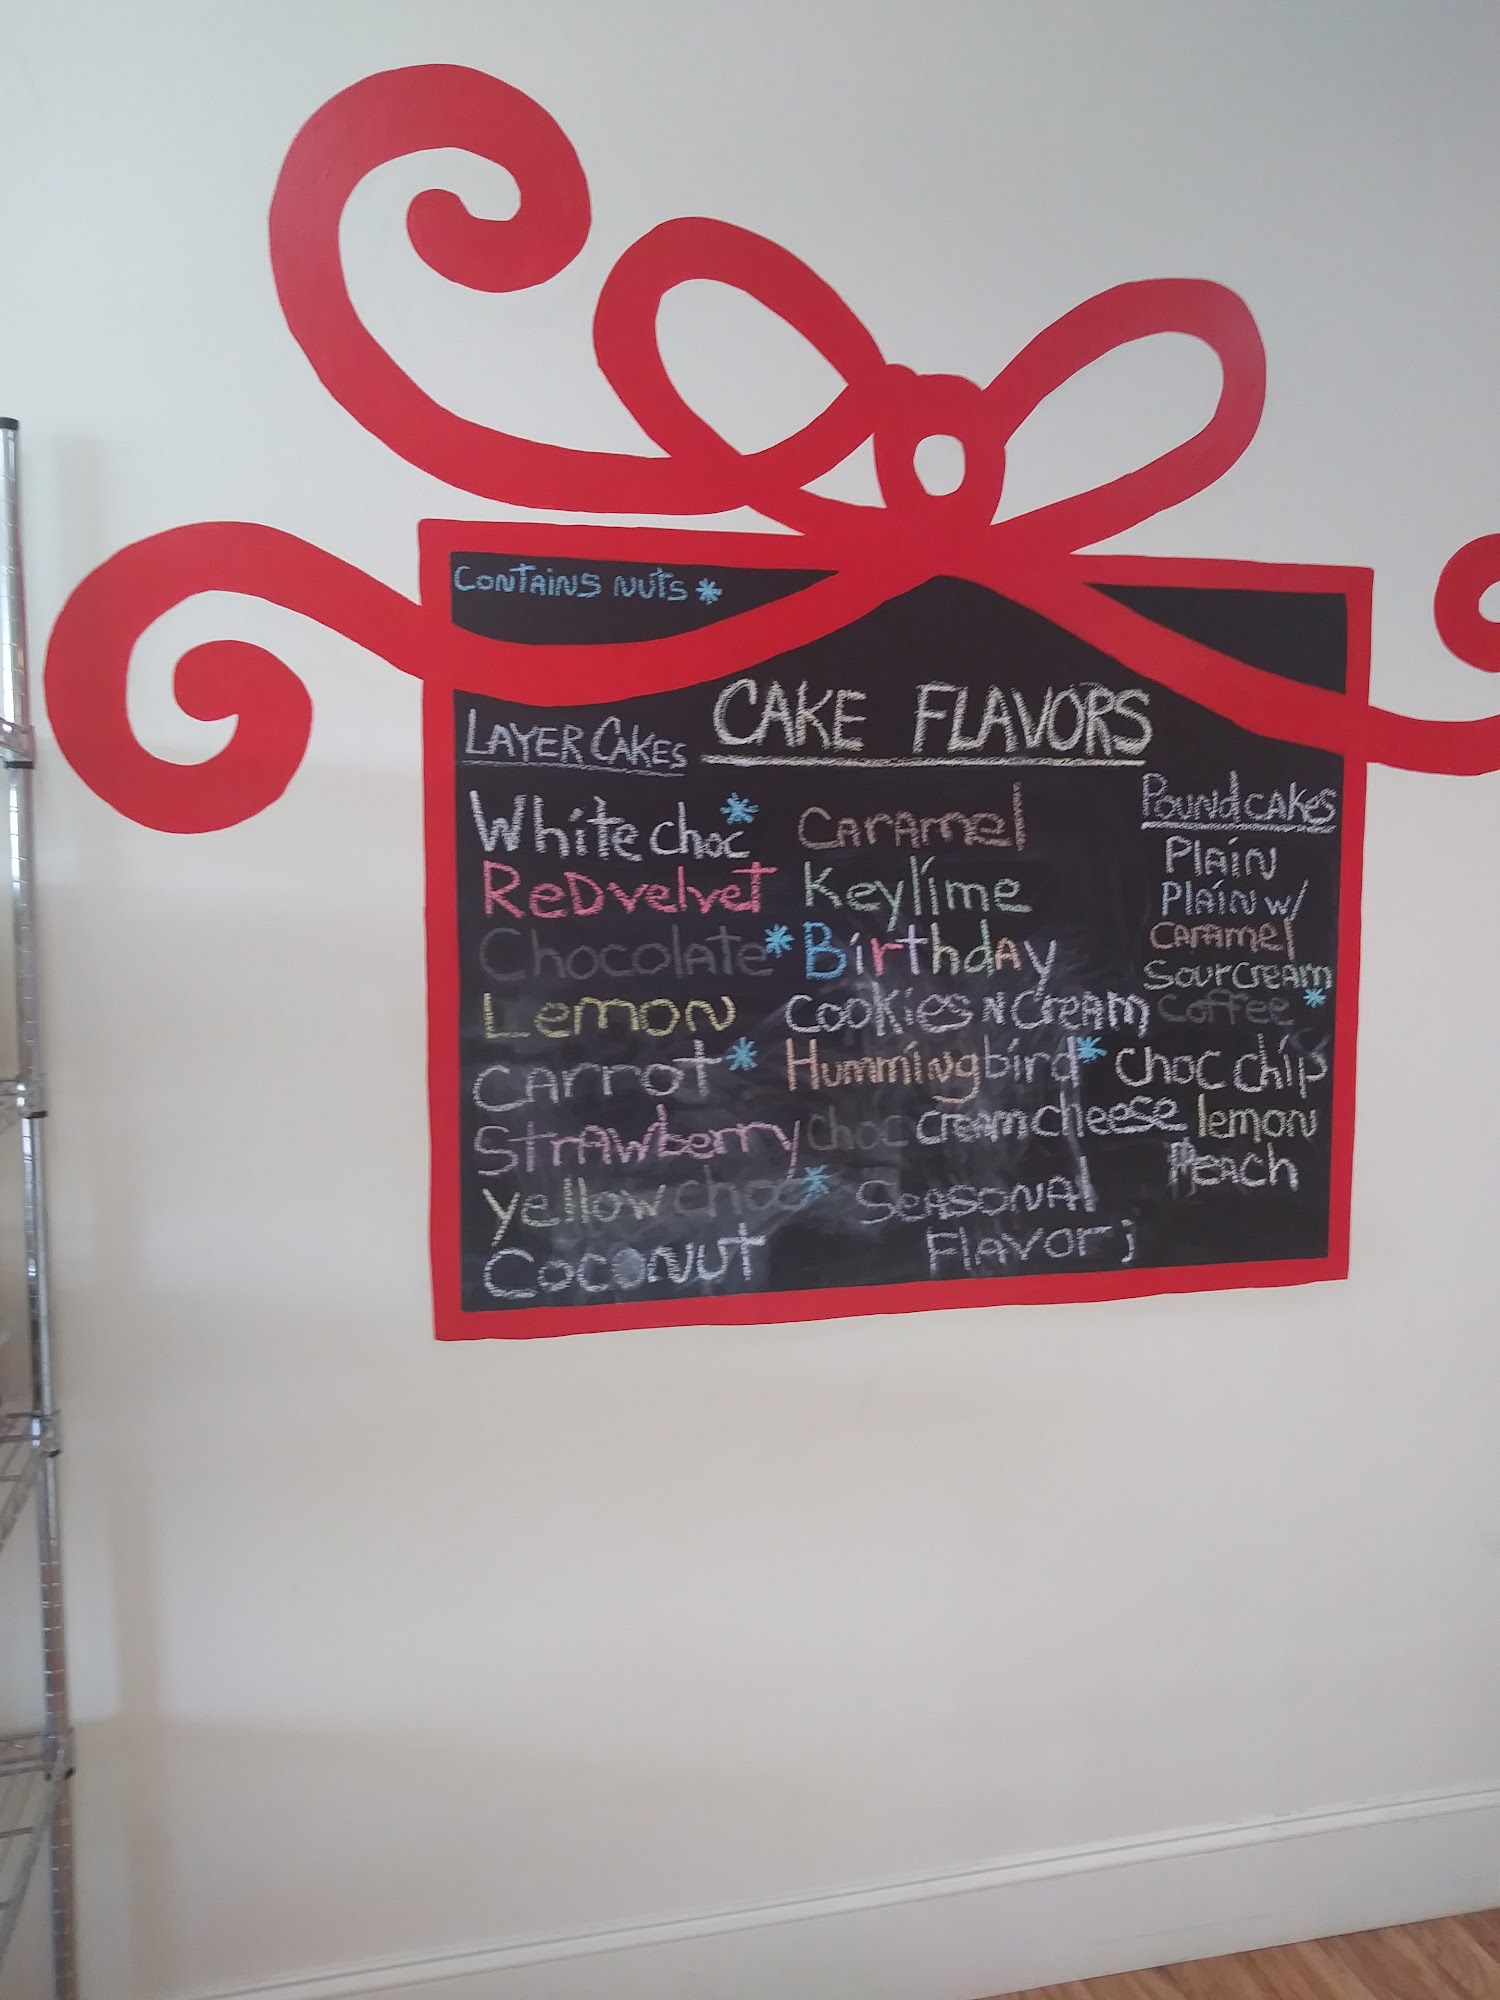 CONTAINS NUTS *
CAKE FLAVORS
LAYER CAKES
White choc *
Red velvet
Chocolate *
Lemon
Carrot *
Strawberry
yellow choc *
Coconut
Caramel
Keylime
Birthday
Cookies N Cream
Hummingbird *
choc creamcheese
Seasonal
Flavor
Poundcakes
Plain
Plain w/
caramel
Sourcream
Coffee *
choc chip
lemon
Peach